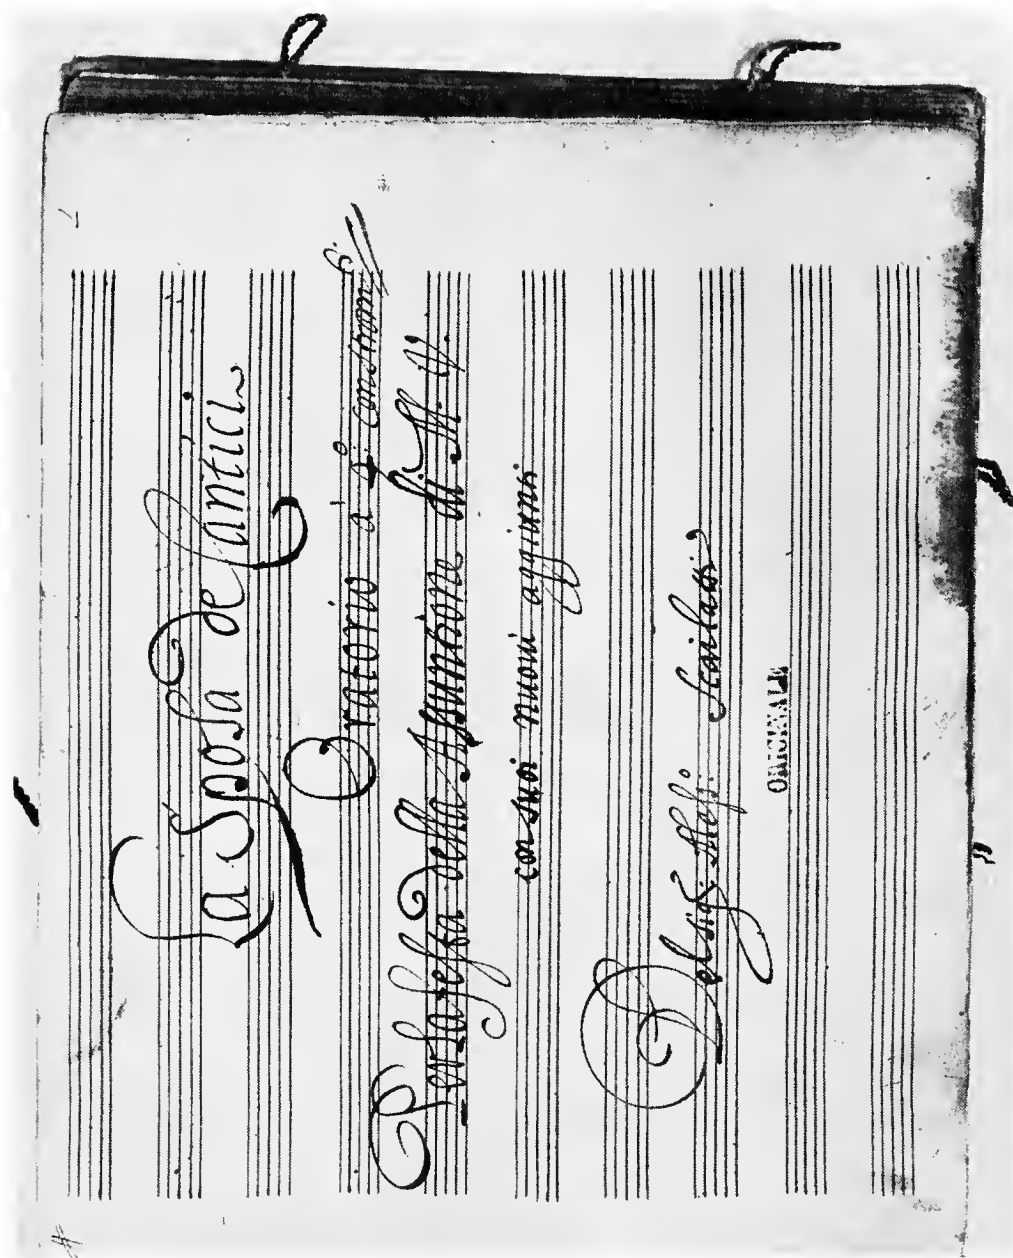 La Sposa de Cantici
Oratorio a 5: con strom.ti
Per la festa della Assuntione di M. V.
con suoi nuovi aggiunti
Del Sig: Aless.o Scarlatti
ORIGINALE